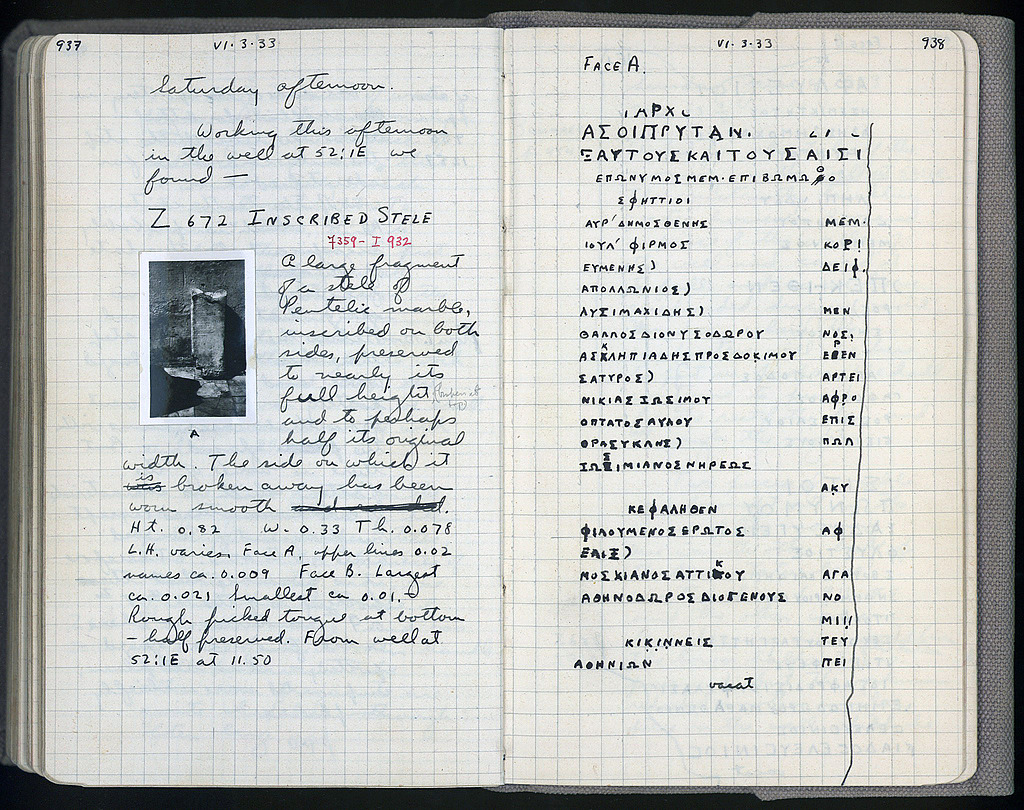 937
VI·3·33
Saturday afternoon.
Working this afternoon
in the well at 52:1E we
found —
Z 672 INSCRIBED STELE
7359 - I 932
A large fragment
of a stele of
Pentelic marble,
inscribed on both
sides, preserved
to nearly its
full height
and to perhaps
half its original
A
width. The side on which it
is broken away has been
worn smooth
Ht. 0.82 W. 0.33 Th. 0.078
L.H. varies. Face A, upper lines 0.02
names ca. 0.009 Face B. Largest
ca. 0.021 Smallest ca 0.01.
Rough picked tongue at bottom
— half preserved. From well at
52:1E at 11.50
VI·3·33
938
FACE A.
ΙΑΡΧ
ΑΣΟΙΠΡΥΤΑΝ.
ΞΑΥΤΟΥΣΚΑΙΤΟΥΣΑΙΣΙ
ΕΠΩΝΥΜΟΣΜΕΜ·ΕΠΙΒΩΜΩ
ΣΦΗΤΤΙΟΙ
ΑΥΡ'ΔΗΜΟΣΘΕΝΗΣ ΜΕΜ·
ΙΟΥΛ' ΦΙΡΜΟΣ ΚΟΡ
ΕΥΜΕΝΗΣ) ΔΕΙΦ.
ΑΠΟΛΛΩΝΙΟΣ)
ΛΥΣΙΜΑΧΙΔΗΣ) ΜΕΝ
ΘΑΛΛΟΣΔΙΟΝΥΣΟΔΩΡΟΥ ΝΟΣ
ΑΣΚΛΗΠΙΑΔΗΣΠΡΟΣΔΟΚΙΜΟΥ ΕΡΕΝ
ΣΑΤΥΡΟΣ) ΑΡΤΕΙ
ΝΙΚΙΑΣΖΩΣΙΜΟΥ ΑΦΡΟ
ΟΠΤΑΤΟΣΑΥΛΟΥ ΕΠΙΣ
ΘΡΑΣΥΚΛΗΣ) ΠΩΛ
ΖΩΣΙΜΙΑΝΟΣΝΗΡΕΩΣ
ΑΚΥ
ΚΕΦΑΛΗΘΕΝ
ΦΙΛΟΥΜΕΝΟΣΕΡΩΤΟΣ ΑΦ
ΕΛΙΞ)
ΜΟΣΧΙΑΝΟΣΑΤΤΙΚΟΥ ΑΓΑ
ΑΘΗΝΟΔΩΡΟΣΔΙΟΓΕΝΟΥΣ ΝΟ
ΜΙ
ΚΙΚΙΝΝΕΙΣ ΤΕΥ
ΑΘΗΝΙΩΝ ΠΕΙ
vacat